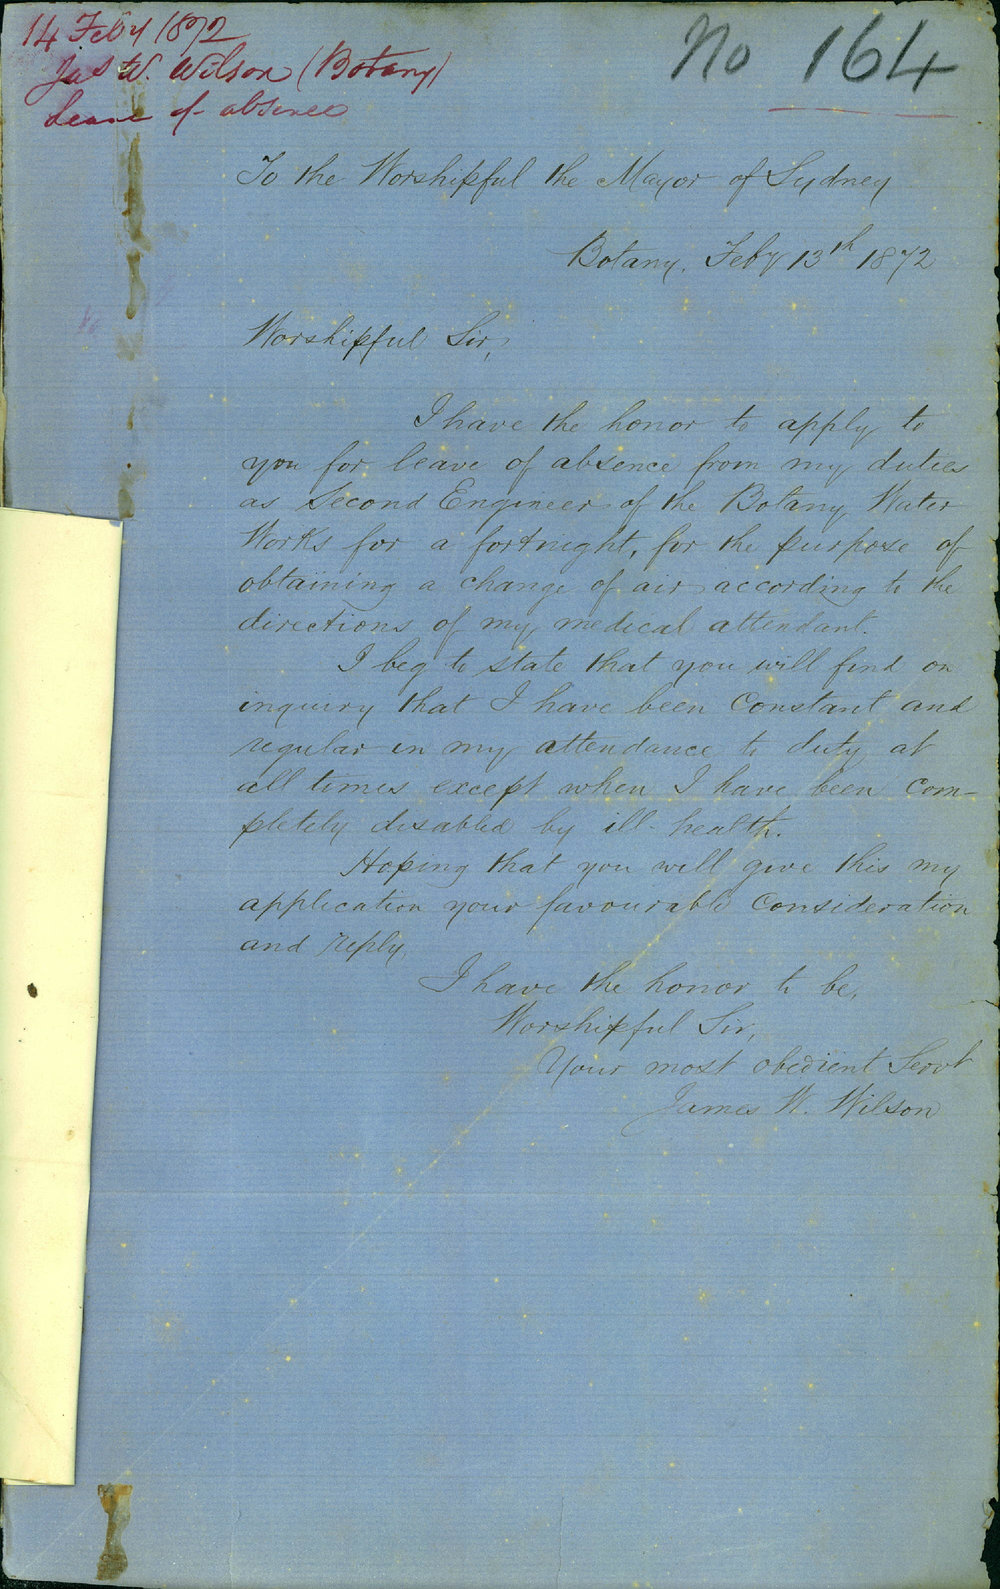 14 Feby 1872
Jas W. Wilson (Botany)
Leave of absence
No 164
To the Worshipful the Mayor of Sydney
Botany, Feby 13th 1872
Worshipful Sir,
I have the honor to apply to
you for leave of absence from my duties
as Second Engineer of the Botany Water
Works for a fortnight, for the purpose of
obtaining a change of air according to the
directions of my medical attendant.
I beg to state that you will find on
inquiry that I have been Constant and
regular in my attendance to duty at
all times except when I have been com-
pletely disabled by ill-health.
Hoping that you will give this my
application your favourable Consideration
and reply,
I have the honor to be,
Worshipful Sir,
Your most obedient Servt
James W. Wilson